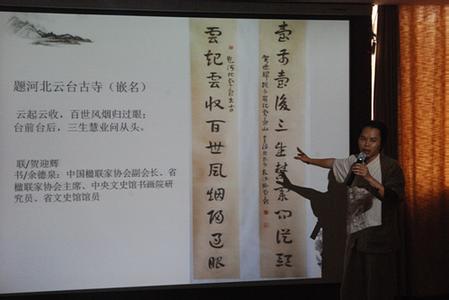 题河北云台古寺（嵌名）
云起云收，百世风烟归过眼；
台前台后，三生慧业问从头。
联/贺迎辉
书/余德泉：中国楹联家协会副会长、省
楹联家协会主席、中央文史馆书画院研
究员、省文史馆馆员
臺前臺後三生慧業問從頭
雲起雲收百世風烟歸過眼